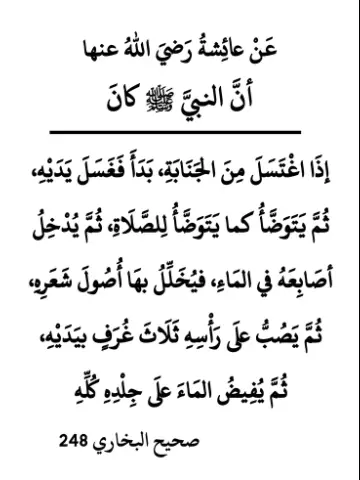 عَنْ عائِشةُ رَضيَ اللهُ عنها
أنَّ النبيَّ ﷺ كانَ
إذَا اغْتَسَلَ مِنَ الجَنَابَةِ، بَدَأَ فَغَسَلَ يَدَيْهِ،
ثُمَّ يَتَوَضَّأُ كما يَتَوَضَّأُ لِلصَّلَاةِ، ثُمَّ يُدْخِلُ
أصَابِعَهُ في المَاءِ، فيُخَلِّلُ بهَا أُصُولَ شَعَرِهِ،
ثُمَّ يَصُبُّ علَى رَأْسِهِ ثَلَاثَ غُرَفٍ بيَدَيْهِ،
ثُمَّ يُفِيضُ المَاءَ علَى جِلْدِهِ كُلِّهِ
صحيح البخاري 248